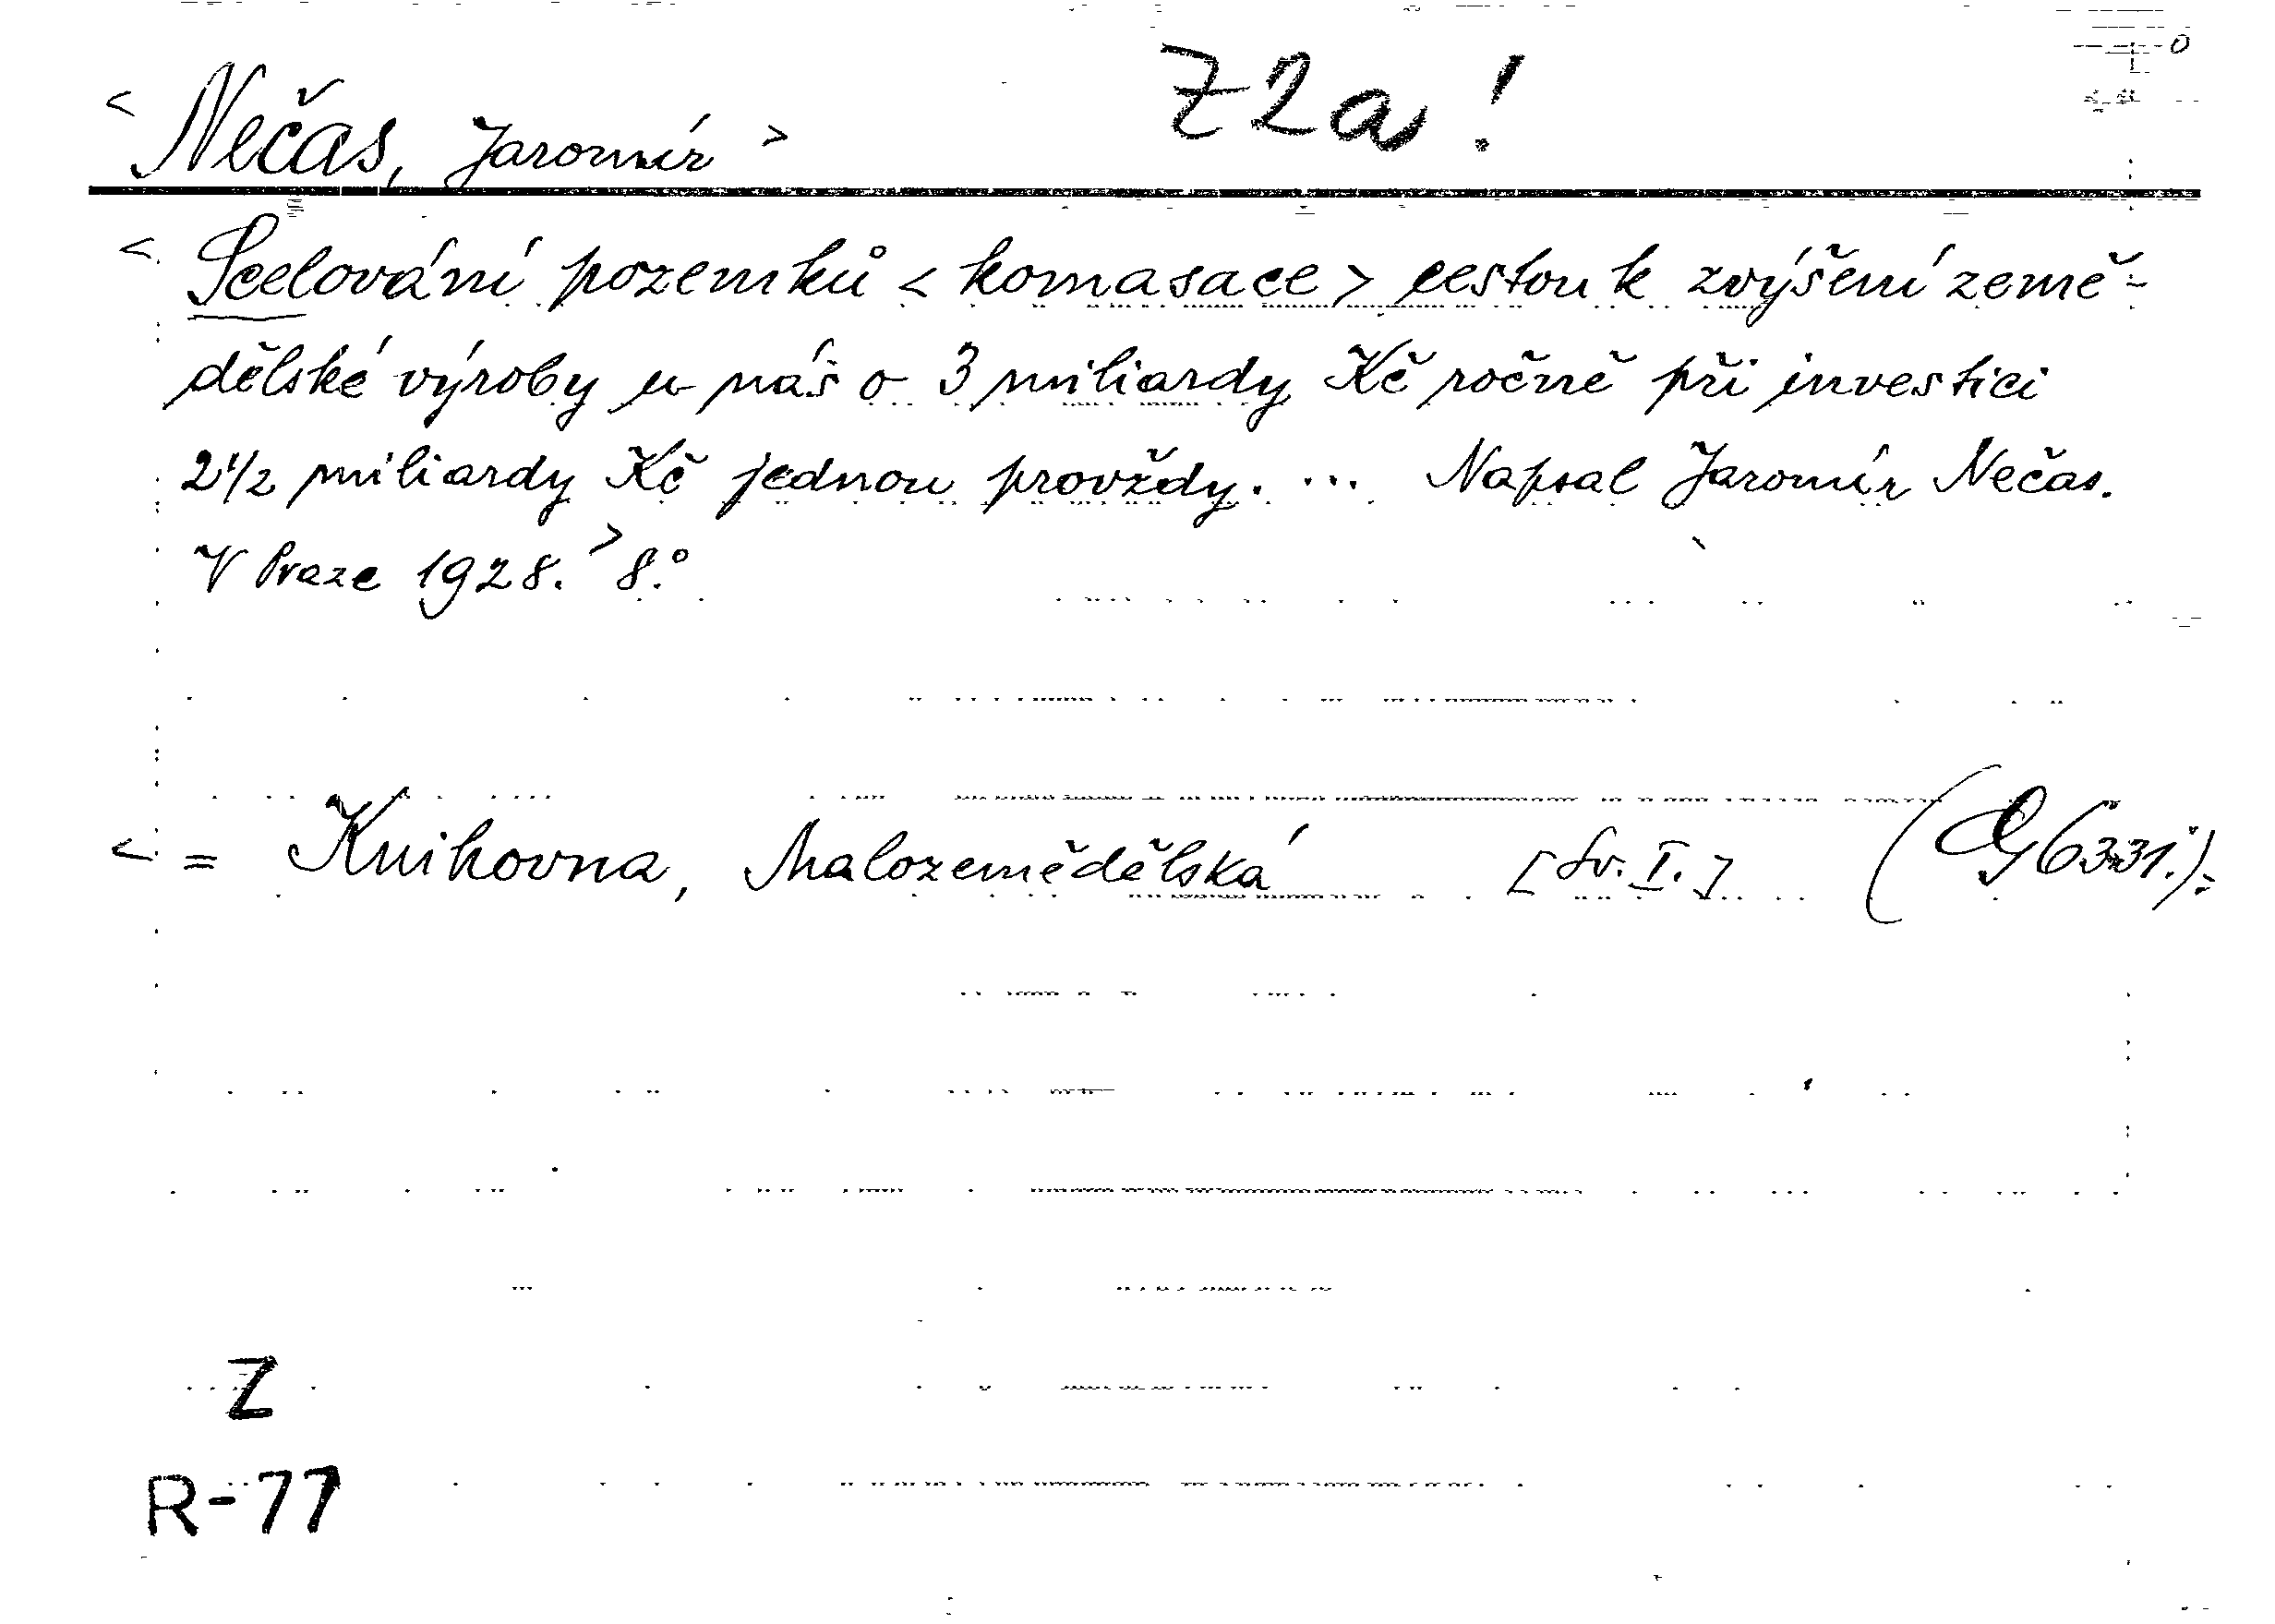 Z2a!
< Nečas, Jaromír >
< Scelování pozemků < komasace > cestou k zvýšení země-
dělské výroby u nás o 3 miliardy Kč ročně při investici
2 1/2 miliardy Kč jednou provždy. ... Napsal Jaromír Nečas.
V Praze 1928. > 8.°
< = Knihovna, Malozemědělská [Sv. I.]
Z
R-77